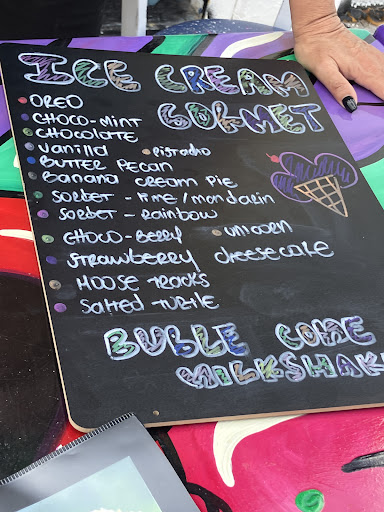 ICE CREAM
GORMET
OREO
CHOCO-MINT
CHOCOLATE
Vanilla PISTACHO
BUTTER PECAN
BANANA CREAM PIE
SORBET - LIME/MANDARIN
SORBET - RAINBOW
CHOCO-BERRY UNICORN
STRAWBERRY CHEESECAKE
MOOSE TRACKS
SALTED TURTLE
BUBLE CONE
MILKSHAK